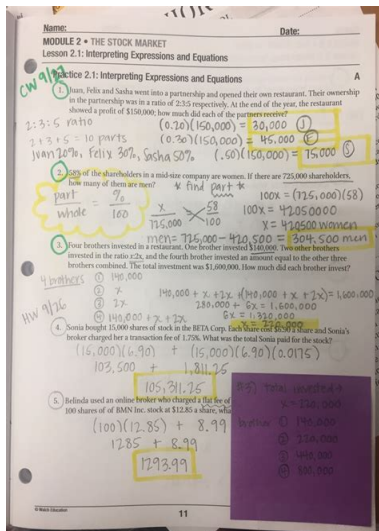 Name:
Date:
MODULE 2 • THE STOCK MARKET
Lesson 2.1: Interpreting Expressions and Equations
CW 9/
Practice 2.1: Interpreting Expressions and Equations
A
1. Juan, Felix and Sasha went into a partnership and opened their own restaurant. Their ownership
in the partnership was in a ratio of 2:3:5 respectively. At the end of the year, the restaurant
showed a profit of $150,000; how much did each of the partners receive?
2:3:5 ratio
(0.20)(150,000) = 30,000 J
2+3+5 = 10 parts
(0.30)(150,000) = 45,000 F
Juan 20%, Felix 30%, Sasha 50%
(.50)(150,000) = 75,000 S
2. 58% of the shareholders in a mid-size company are women. If there are 725,000 shareholders,
how many of them are men?
* find part *
part/whole = %/100
100x = (725,000)(58)
x/725,000 = 58/100
100x = 42050000
x = 420500 women
men = 725,000 - 420,500 = 304,500 men
3. Four brothers invested in a restaurant. One brother invested $140,000. Two other brothers
invested in the ratio x:2x, and the fourth brother invested an amount equal to the other three
brothers combined. The total investment was $1,600,000. How much did each brother invest?
4 brothers
① 140,000
② x
140,000 + x + 2x + (140,000 + x + 2x) = 1,600,000
③ 2x
280,000 + 6x = 1,600,000
HW 9/26
④ 140,000 + x + 2x
6x = 1,320,000
x = 220,000
4. Sonia bought 15,000 shares of stock in the BETA Corp. Each share cost $6.90 a share and Sonia's
broker charged her a transaction fee of 1.75%. What was the total Sonia paid for the stock?
(15,000)(6.90) + (15,000)(6.90)(0.0175)
103,500 + 1,811.25
105,311.25
5. Belinda used an online broker who charged a flat fee of
100 shares of BMN Inc. stock at $12.85 a share, wha
(100)(12.85) + 8.99
1285 + 8.99
1293.99
#3) total invested
x = 220,000
brother ① 140,000
② 220,000
③ 440,000
④ 800,000
11